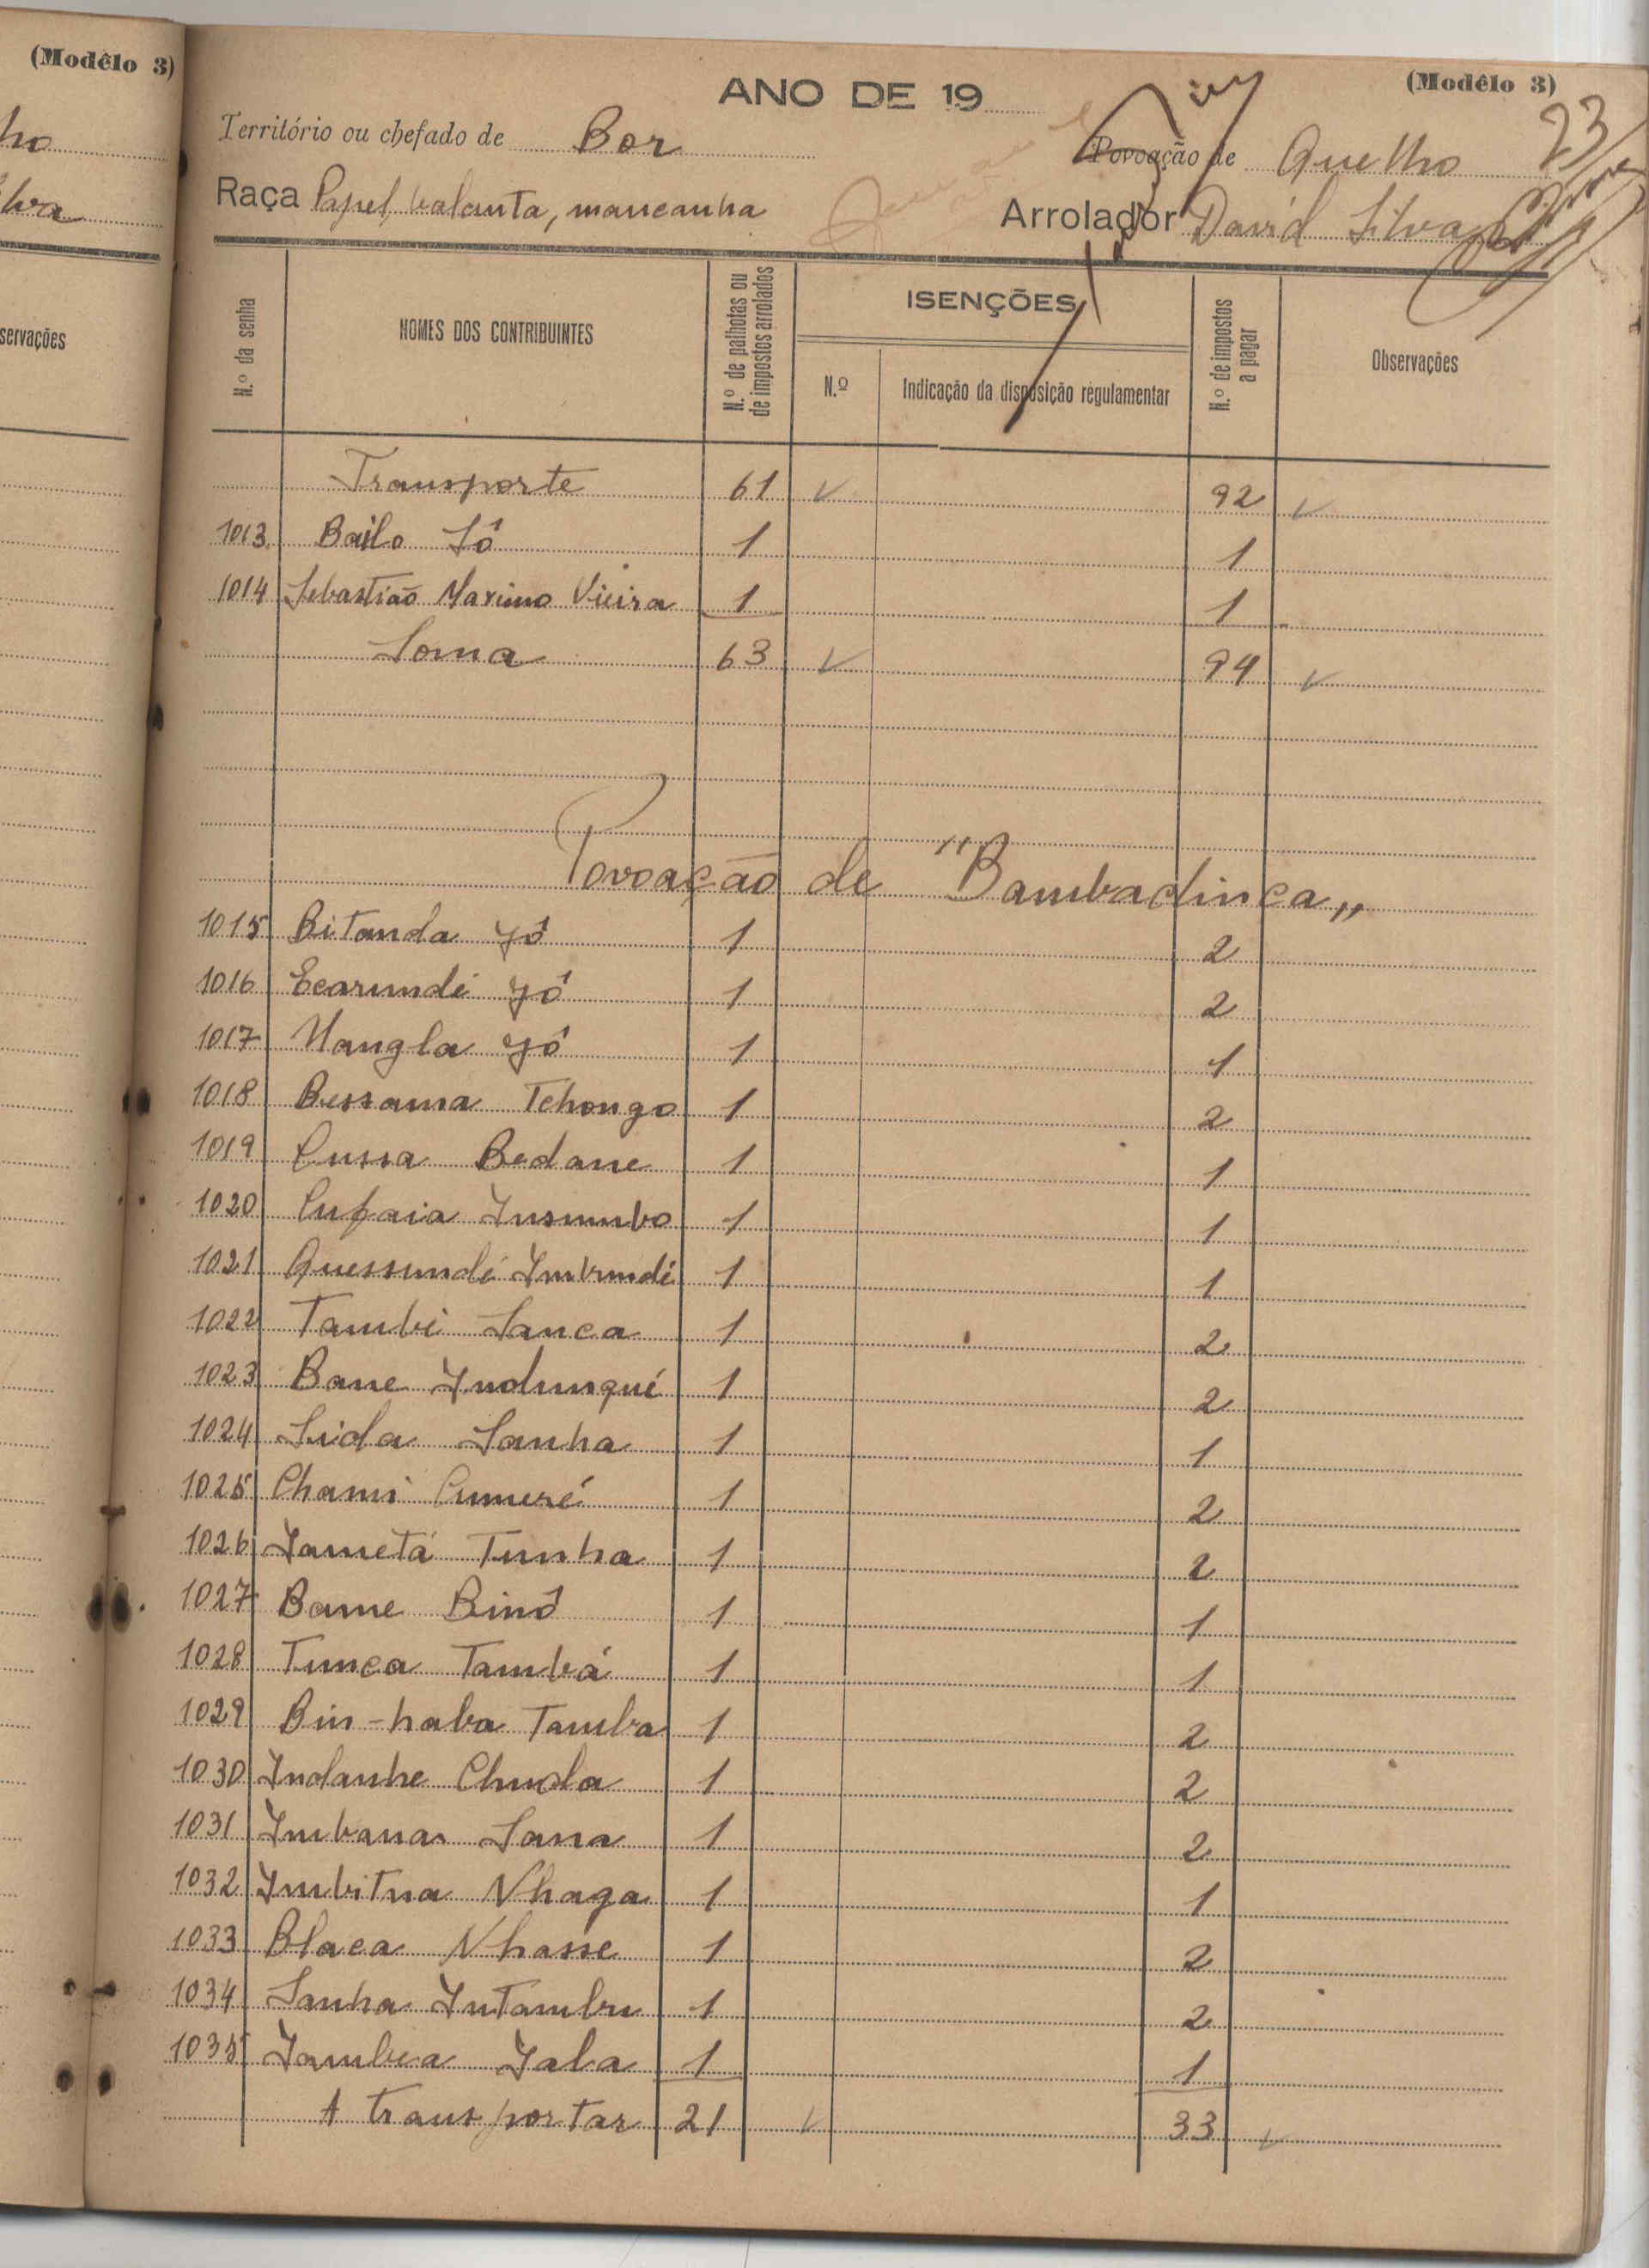 (Modêlo 3)
servações
ANO DE 19
(Modêlo 3)
23
Território ou chefado de Bor
Povoação de Quelho
Raça Papel, balanta, mancanha
Arrolador David Silva
N.º da senha
NOMES DOS CONTRIBUINTES
N.º de palhotas ou de impostos arrolados
ISENÇÕES
N.º
Indicação da disposição regulamentar
N.º de impostos a pagar
Observações
Transporte 61 92
1013 Bailo Só 1 1
1014 Sebastião Maximo Vieira 1 1
Soma 63 94
Povoação de "Bambadinca"
1015 Bitanda Yó 1 2
1016 Ecarundi Yó 1 2
1017 Nangla Yó 1 1
1018 Bessama Tchongo 1 2
1019 Cussa Bedane 1 1
1020 Cufaia Insumbo 1 1
1021 Quessundi Imbundé 1 1
1022 Tambi Sanca 1 2
1023 Bane Indunqué 1 2
1024 Sida Sanha 1 1
1025 Chami Cumeré 1 2
1026 Iametá Tunha 1 2
1027 Bame Binó 1 1
1028 Tunca Tambá 1 1
1029 Bin-haba Tamba 1 2
1030 Indanhe Chuda 1 2
1031 Imbana Sana 1 2
1032 Imbitna Nhaga 1 1
1033 Blaca Nhasse 1 2
1034 Sanha Intambu 1 2
1035 Iambca Iala 1 1
A transportar 21 33